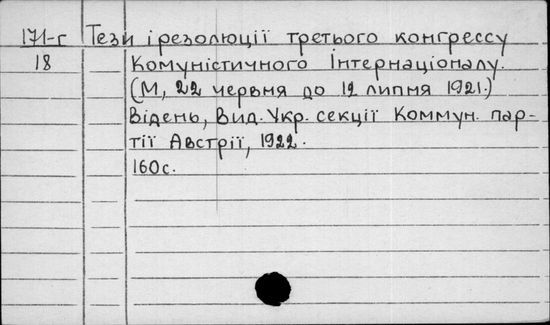 171-г Тези і резолюції третього конгрессу
18 Комуністичного Інтернаціоналу.
(М, 22 червня до 12 липня 1921.)
Відень, Вид. Укр. секції Коммун. пар-
тії Австрії, 1922.
160с.